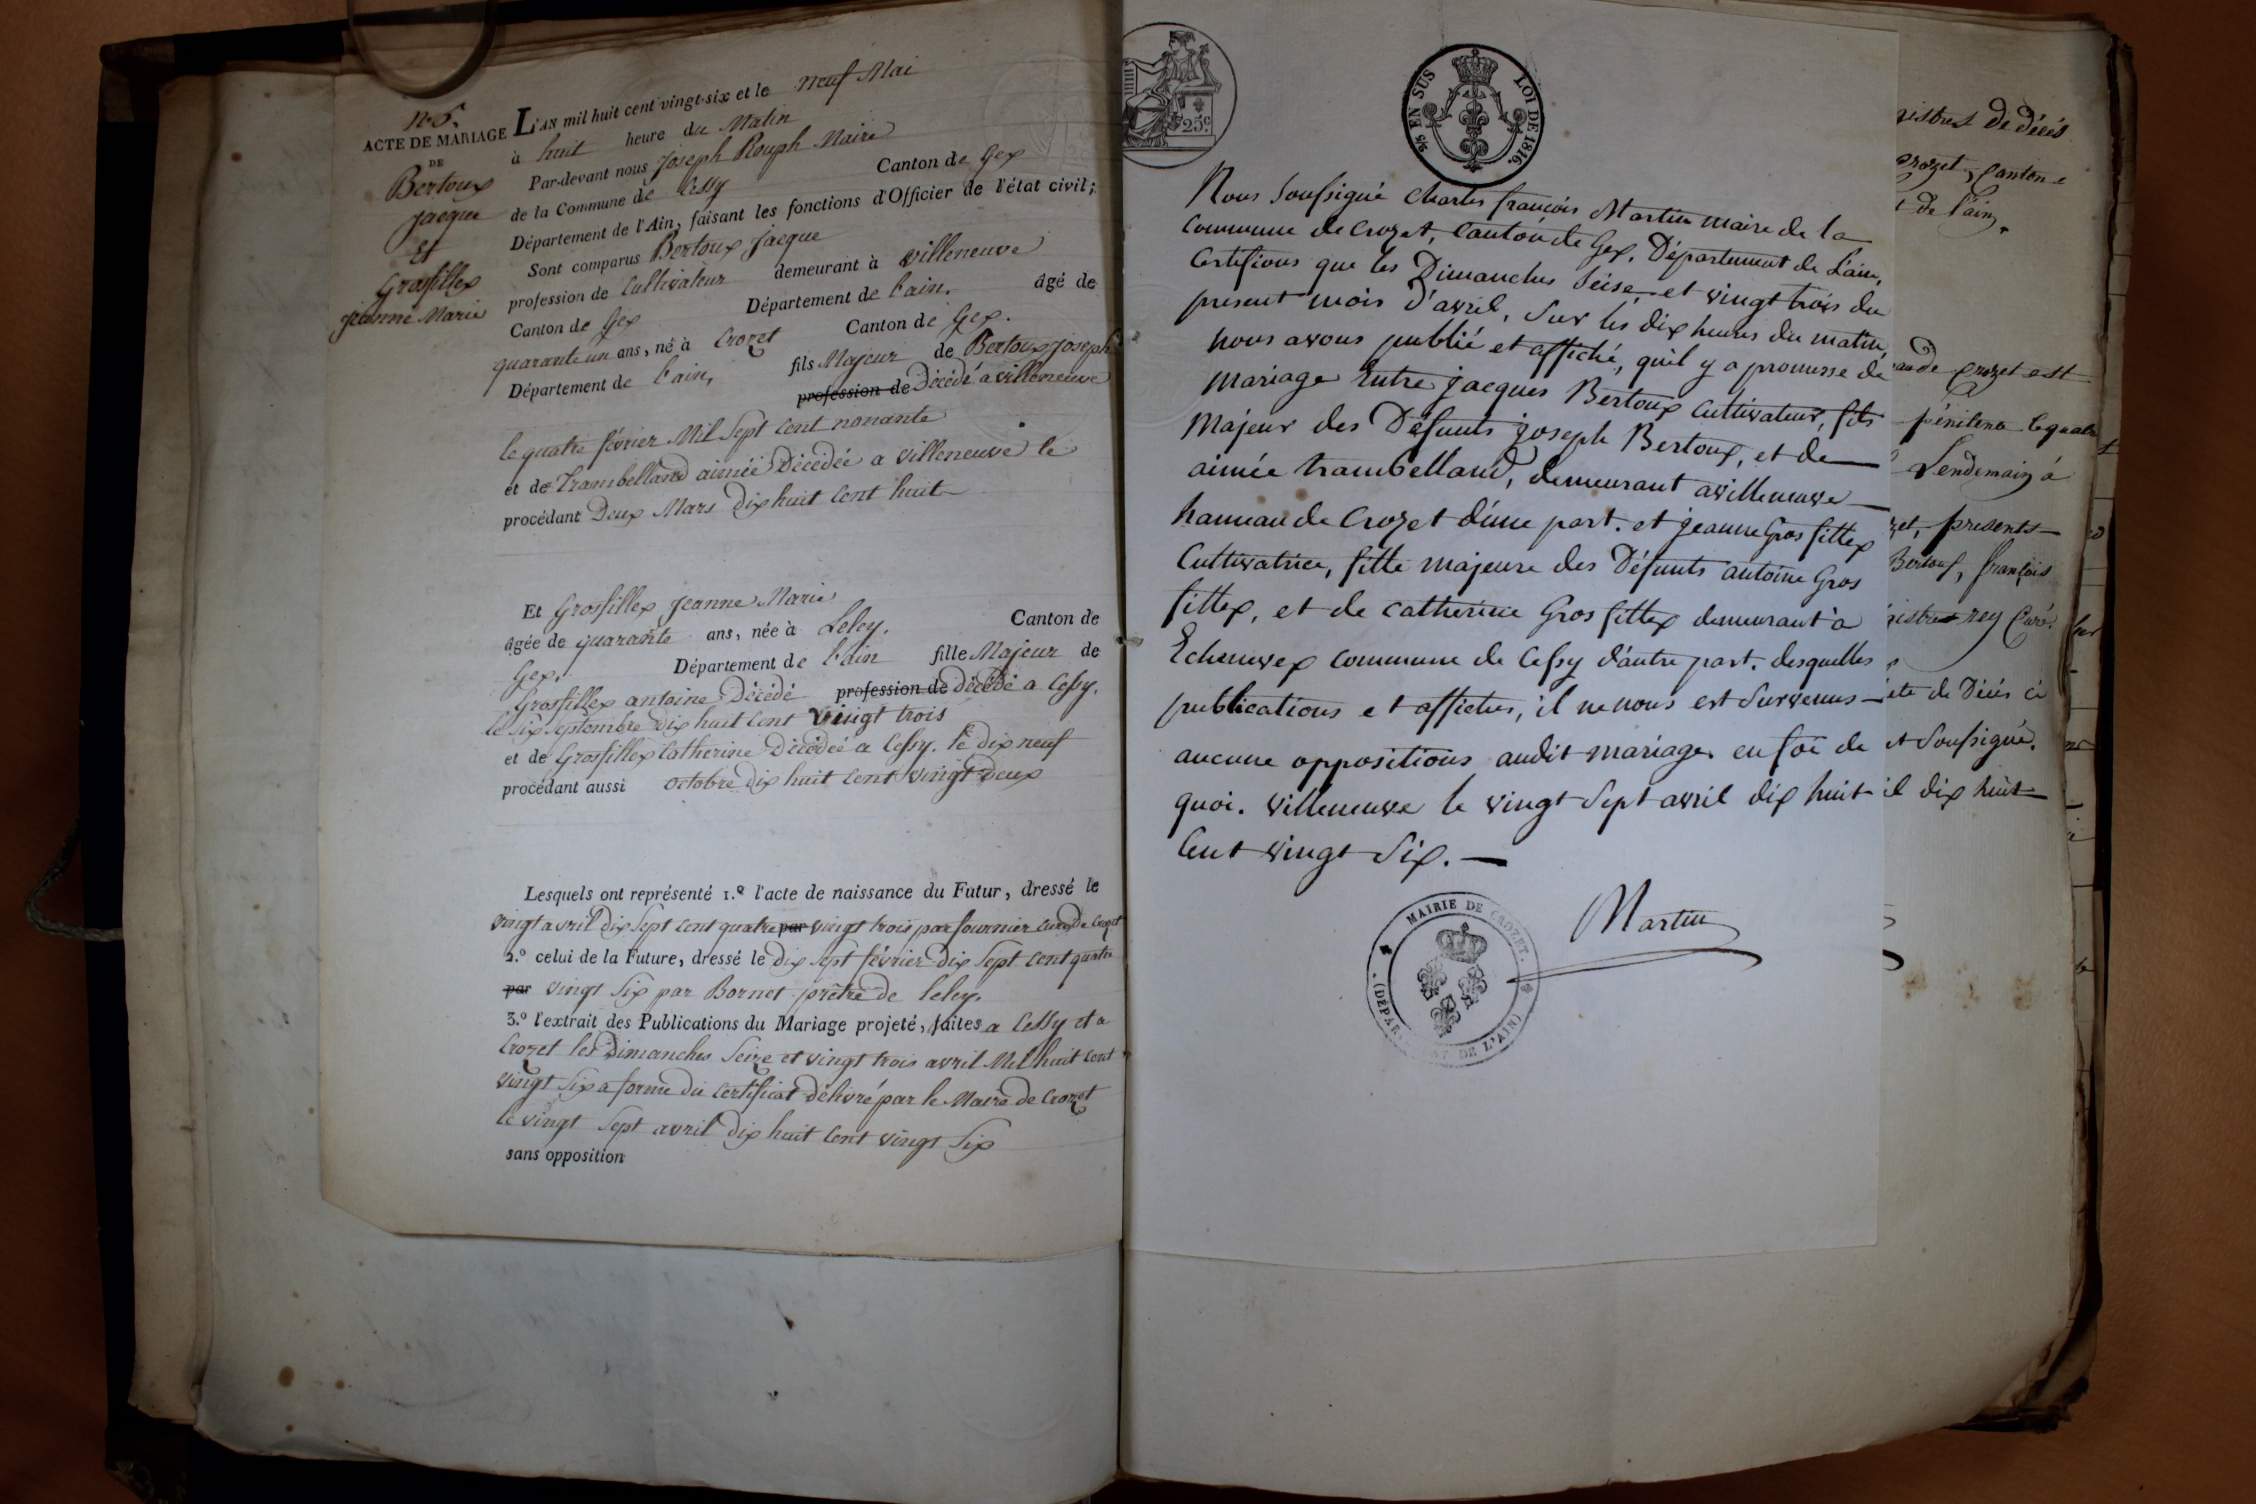 n.o 6.
ACTE DE MARIAGE
DE
Bertoux
Jacque
Et
Grosfillex
jeanne Marie
L'AN mil huit cent vingt-six et le neuf Mai
à huit heure du Matin
Par-devant nous Joseph Rouph Maire
de la Commune de Cessy Canton de Gex
Département de l'Ain, faisant les fonctions d'Officier de l'état civil;
Sont comparus Bertoux Jacque
profession de Cultivateur demeurant à villeneuve
Canton de Gex Département de l'ain. âgé de
quarante un ans, né à Crozet Canton de Gex.
Département de l'ain, fils Majeur de Bertoux joseph
profession de Décédé a villeneuve
le quatre février Mil Sept Cent nonante
et de Trambelland aimée Décédée a villeneuve le
procédant Deux Mars Dix huit Cent huit
Et Grosfillex Jeanne Marie
âgée de quarante ans, née à Leley. Canton de
Gex. Département de l'Ain fille Majeur de
Grosfillex antoine Décédé profession de Décédé a Cessy.
le Six Septembre Dix huit Cent vingt trois
et de Grosfillex Catherine Décédée a Cessy. le Dix neuf
procédant aussi octobre Dix huit Cent vingt Deux
Lesquels ont représenté 1.º l'acte de naissance du Futur, dressé le
vingt avril Dix Sept Cent quatre par vingt trois par fournier Curé De Crozet
2.º celui de la Future, dressé le Dix Sept février Dix Sept Cent quatre
par vingt Six par Bornet prêtre de leley.
3.º l'extrait des Publications du Mariage projeté, faites a Cessy et a
Crozet les Dimanches Seize et vingt trois avril Mil huit Cent
vingt Six a forme du Certificat Délivré par le Maire de Crozet
le vingt Sept avril Dix huit Cent vingt Six
sans opposition
25c
5/5 EN SUS
LOI DE 1816.
Nous Soussigné Charles françois Martin maire de la
Commune de Crozet, Canton de Gex, Département de L'ain,
Certifions que les Dimanches Seise, et vingt trois du
present mois d'avril, Sur les dix heures du matin,
nous avons publié et affiché, qu'il y a promesse de
mariage Entre jacques Bertoux Cultivateur, fils
Majeur des Défunts joseph Bertoux, et de
aimée trambelland, demeurant a villeneuve
hameau de Crozet d'une part. et jeanne Gros fillex
Cultivatrice, fille majeure des Défunts antoine Gros
fillex, et de Catherine Gros fillex demeurant à
Echenevex Commune de Cessy d'autre part. desquelles
publications et affiches, il ne nous est Survenus
aucune oppositions audit mariage. en foi de
quoi. villeneuve le vingt Sept avril dix huit
Cent vingt Six.
Martin
MAIRIE DE CROZET.
(DÉPAR DE L'AIN)
de décés
Crozet, Canton
de l'ain,
de Crozet est
Lendemain à
presents
Bertoux, françois
rey Curé.
de Décés ci
et Soussigné.
dix huit